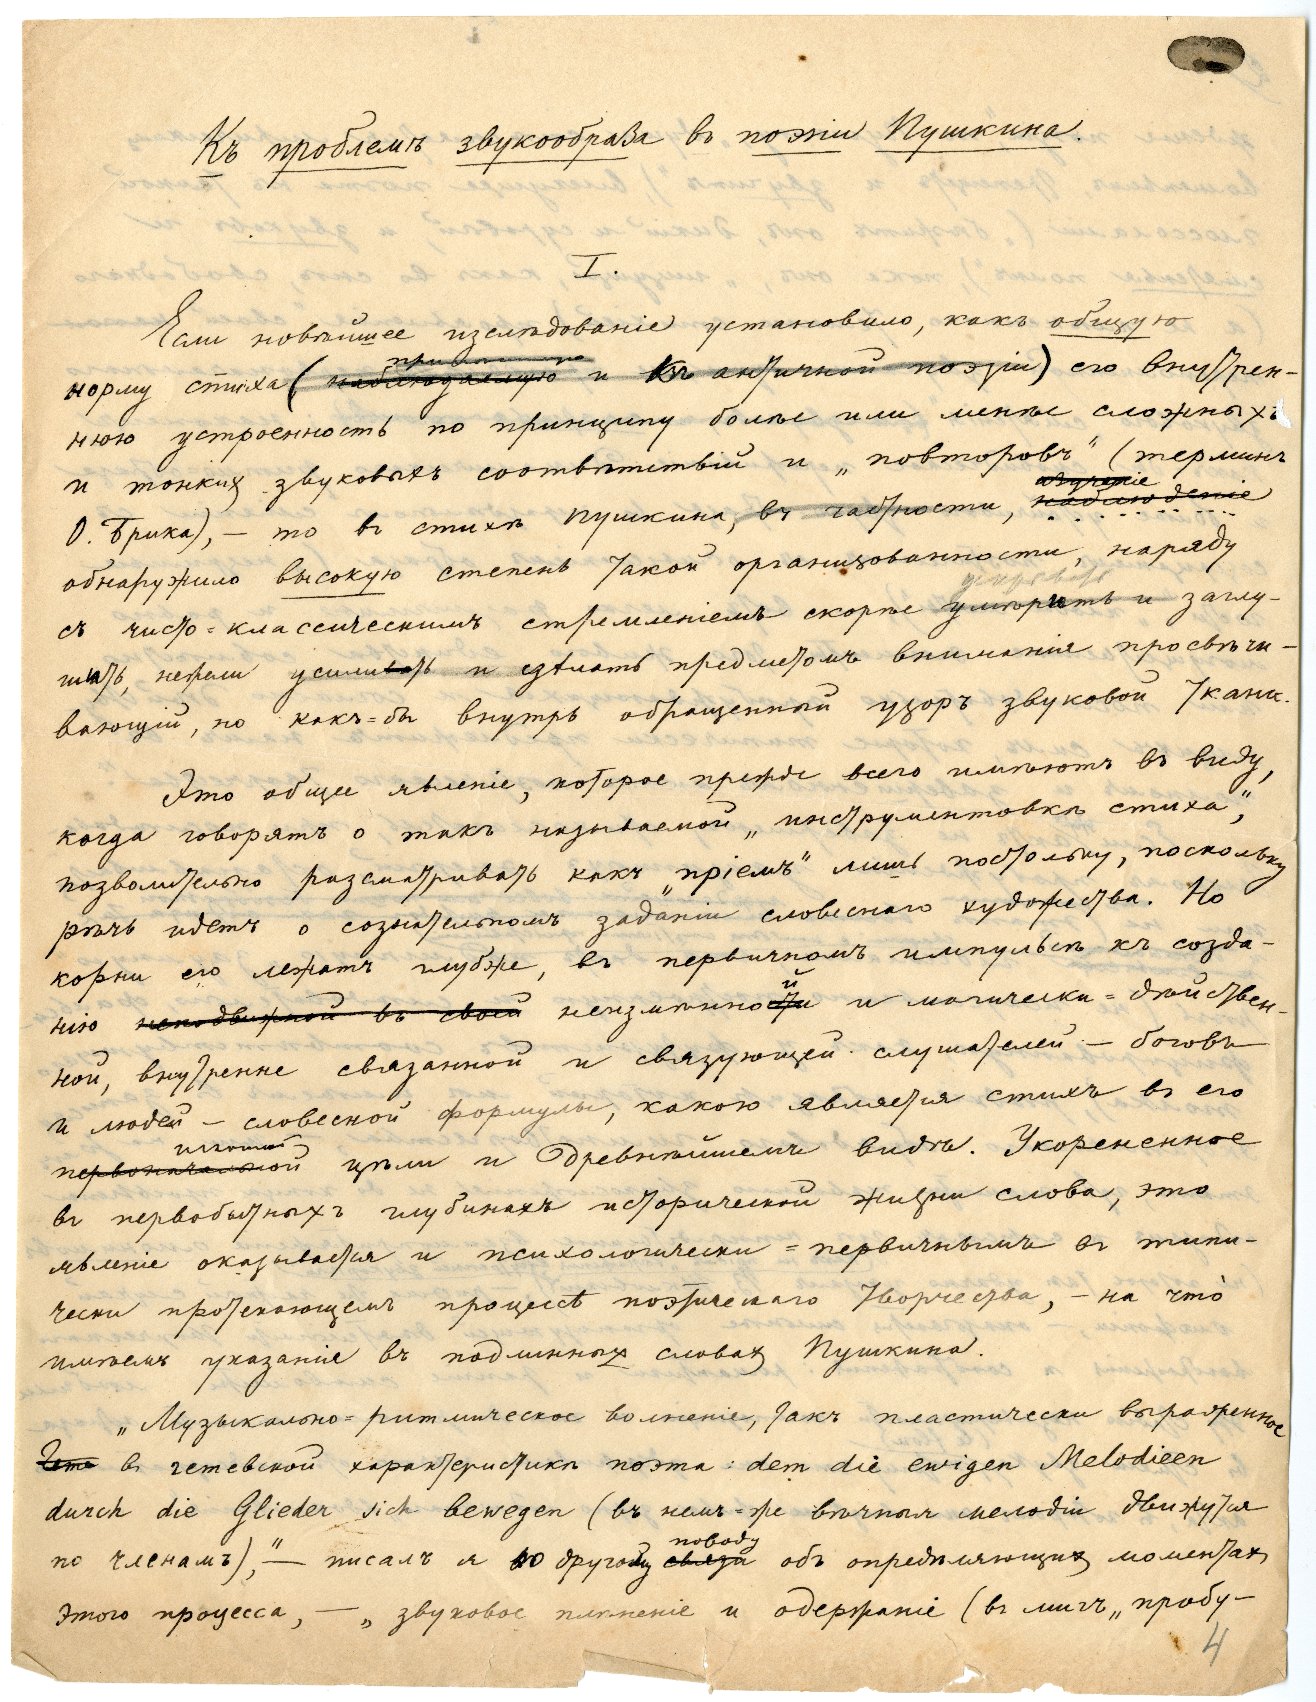 Къ проблемѣ звукообраза въ поэзіи Пушкина.
I.
Если новѣйшее изслѣдованіе установило, какъ общую
норму стиха (наблюдаемую и въ античной поэзіи) его внутрен-
нюю устроенность по принципу болѣе или менѣе сложныхъ
и тонкихъ звуковыхъ соотвѣтствій и „повторовъ" (терминъ
изученіе
О. Брика), — то въ стихѣ Пушкина, въ частности, наблюденіе
обнаружило высокую степень такой организованности, наряду
съ чисто=классическимъ стремленіемъ скорѣе умѣрить и заглу-
шать, нежели усилить и сдѣлать предметомъ вниманія просвѣчи-
вающій, но какъ=бы внутрь обращенный узоръ звуковой ткани.
Это общее явленіе, которое прежде всего имѣютъ въ виду,
когда говорятъ о такъ называемой „инструментовкѣ стиха",
позволительно разсматривать какъ „пріемъ" лишь постольку, поскольку
рѣчь идетъ о сознательномъ заданіи словеснаго художества. Но
корни его лежатъ глубже, въ первичномъ импульсѣ къ созда-
нію неподвижной въ своей неизмѣнной и магически=дѣйствен-
ной, внутренне связанной и связующей слушателей — боговъ
и людей — словесной формулы, какою является стихъ въ его
исконной
первоначальной цѣли и древнѣйшемъ видѣ. Укорененное
въ первобытныхъ глубинахъ исторической жизни слова, это
явленіе оказывается и психологически=первичнымъ въ типи-
чески протекающемъ процессѣ поэтическаго творчества, — на что̀
имѣемъ указаніе въ подлинныхъ словахъ Пушкина.
„Музыкально=ритмическое волненіе, такъ пластически выраженное
Гете въ гетевской характеристикѣ поэта: dem die ewigen Melodieen
durch die Glieder sich bewegen (въ немъ=же вѣчныя мелодіи движутся
поводу
по членамъ)," — писалъ я по другому связи объ опредѣляющихъ моментахъ
этого процесса, — „звуковое плѣненіе и одержаніе (въ мигъ „пробу-
4